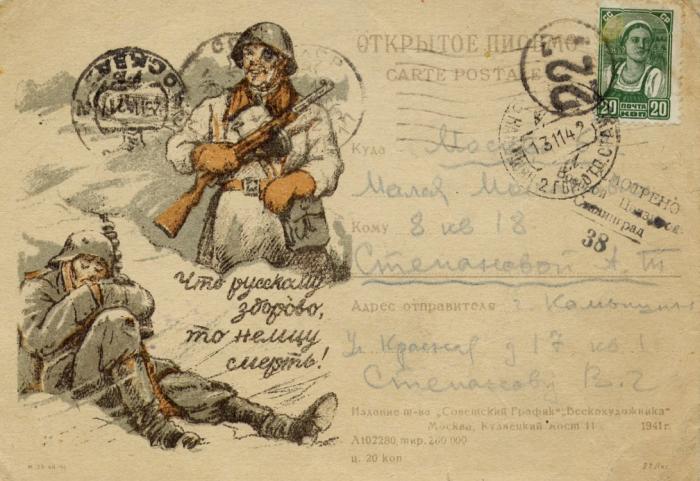 ОТКРЫТОЕ ПИСЬМО
CARTE POSTALE
СС СР
ПОЧТА
20 КОП 20
МОСКВА
22
13 11 42
Куда
Малая
Кому 8 кв 18
Степановой А. Т
ПРОСМОТРЕНО
Военной Цензурой
Сталинград
38
Адрес отправителя г. Камышин
ул Красная д 17 кв 1
Степанову В. Г
Что русскому
здорово,
то немцу
смерть!
Издание т-ва „Советский График“ „Всекохудожника“
Москва, Кузнецкий мост 11 1941 г.
А102280, тир. 260 000
ц. 20 коп